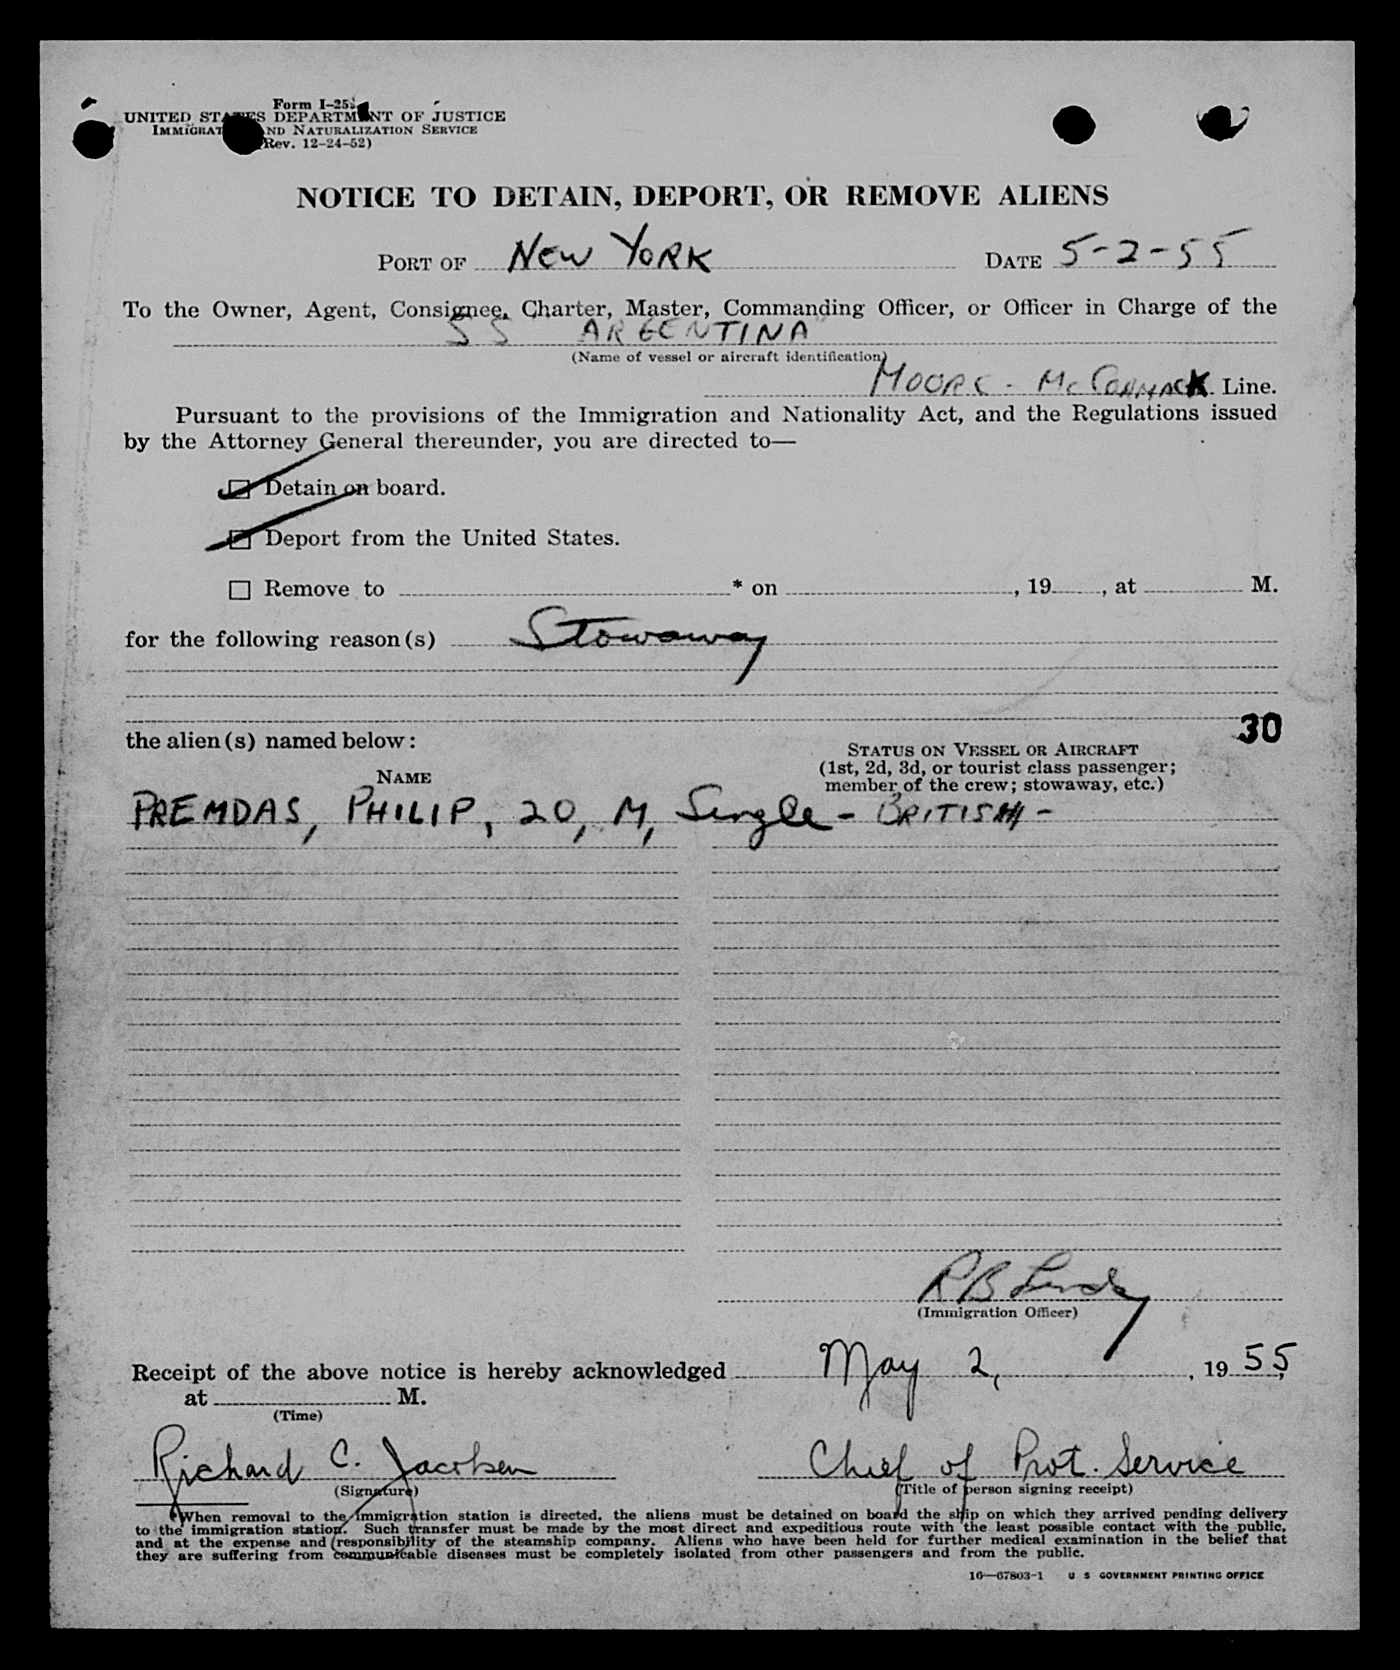 Form I-259
UNITED STATES DEPARTMENT OF JUSTICE
IMMIGRATION AND NATURALIZATION SERVICE
(Rev. 12-24-52)
NOTICE TO DETAIN, DEPORT, OR REMOVE ALIENS
PORT OF NEW YORK DATE 5-2-55
To the Owner, Agent, Consignee, Charter, Master, Commanding Officer, or Officer in Charge of the
SS "ARGENTINA"
(Name of vessel or aircraft identification)
MOORE-McCORMACK Line.
Pursuant to the provisions of the Immigration and Nationality Act, and the Regulations issued
by the Attorney General thereunder, you are directed to—
Detain on board.
Deport from the United States.
Remove to * on , 19 , at M.
for the following reason(s) Stowaway
30
the alien(s) named below:
STATUS ON VESSEL OR AIRCRAFT
(1st, 2d, 3d, or tourist class passenger;
member of the crew; stowaway, etc.)
NAME
PREMDAS, PHILIP, 20, M, Single - BRITISH -
R B
(Immigration Officer)
Receipt of the above notice is hereby acknowledged May 2, , 19 55,
at M.
(Time)
Richard C. Jacobsen Chief of Prot. Service
(Signature) (Title of person signing receipt)
*When removal to the immigration station is directed, the aliens must be detained on board the ship on which they arrived pending delivery
to the immigration station. Such transfer must be made by the most direct and expeditious route with the least possible contact with the public,
and at the expense and responsibility of the steamship company. Aliens who have been held for further medical examination in the belief that
they are suffering from communicable diseases must be completely isolated from other passengers and from the public.
16—67803-1 U S GOVERNMENT PRINTING OFFICE